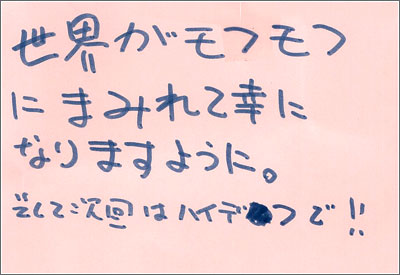 世界がモフモフ
にまみれて幸に
なりますように。
そして次回はハイデ●つで!!